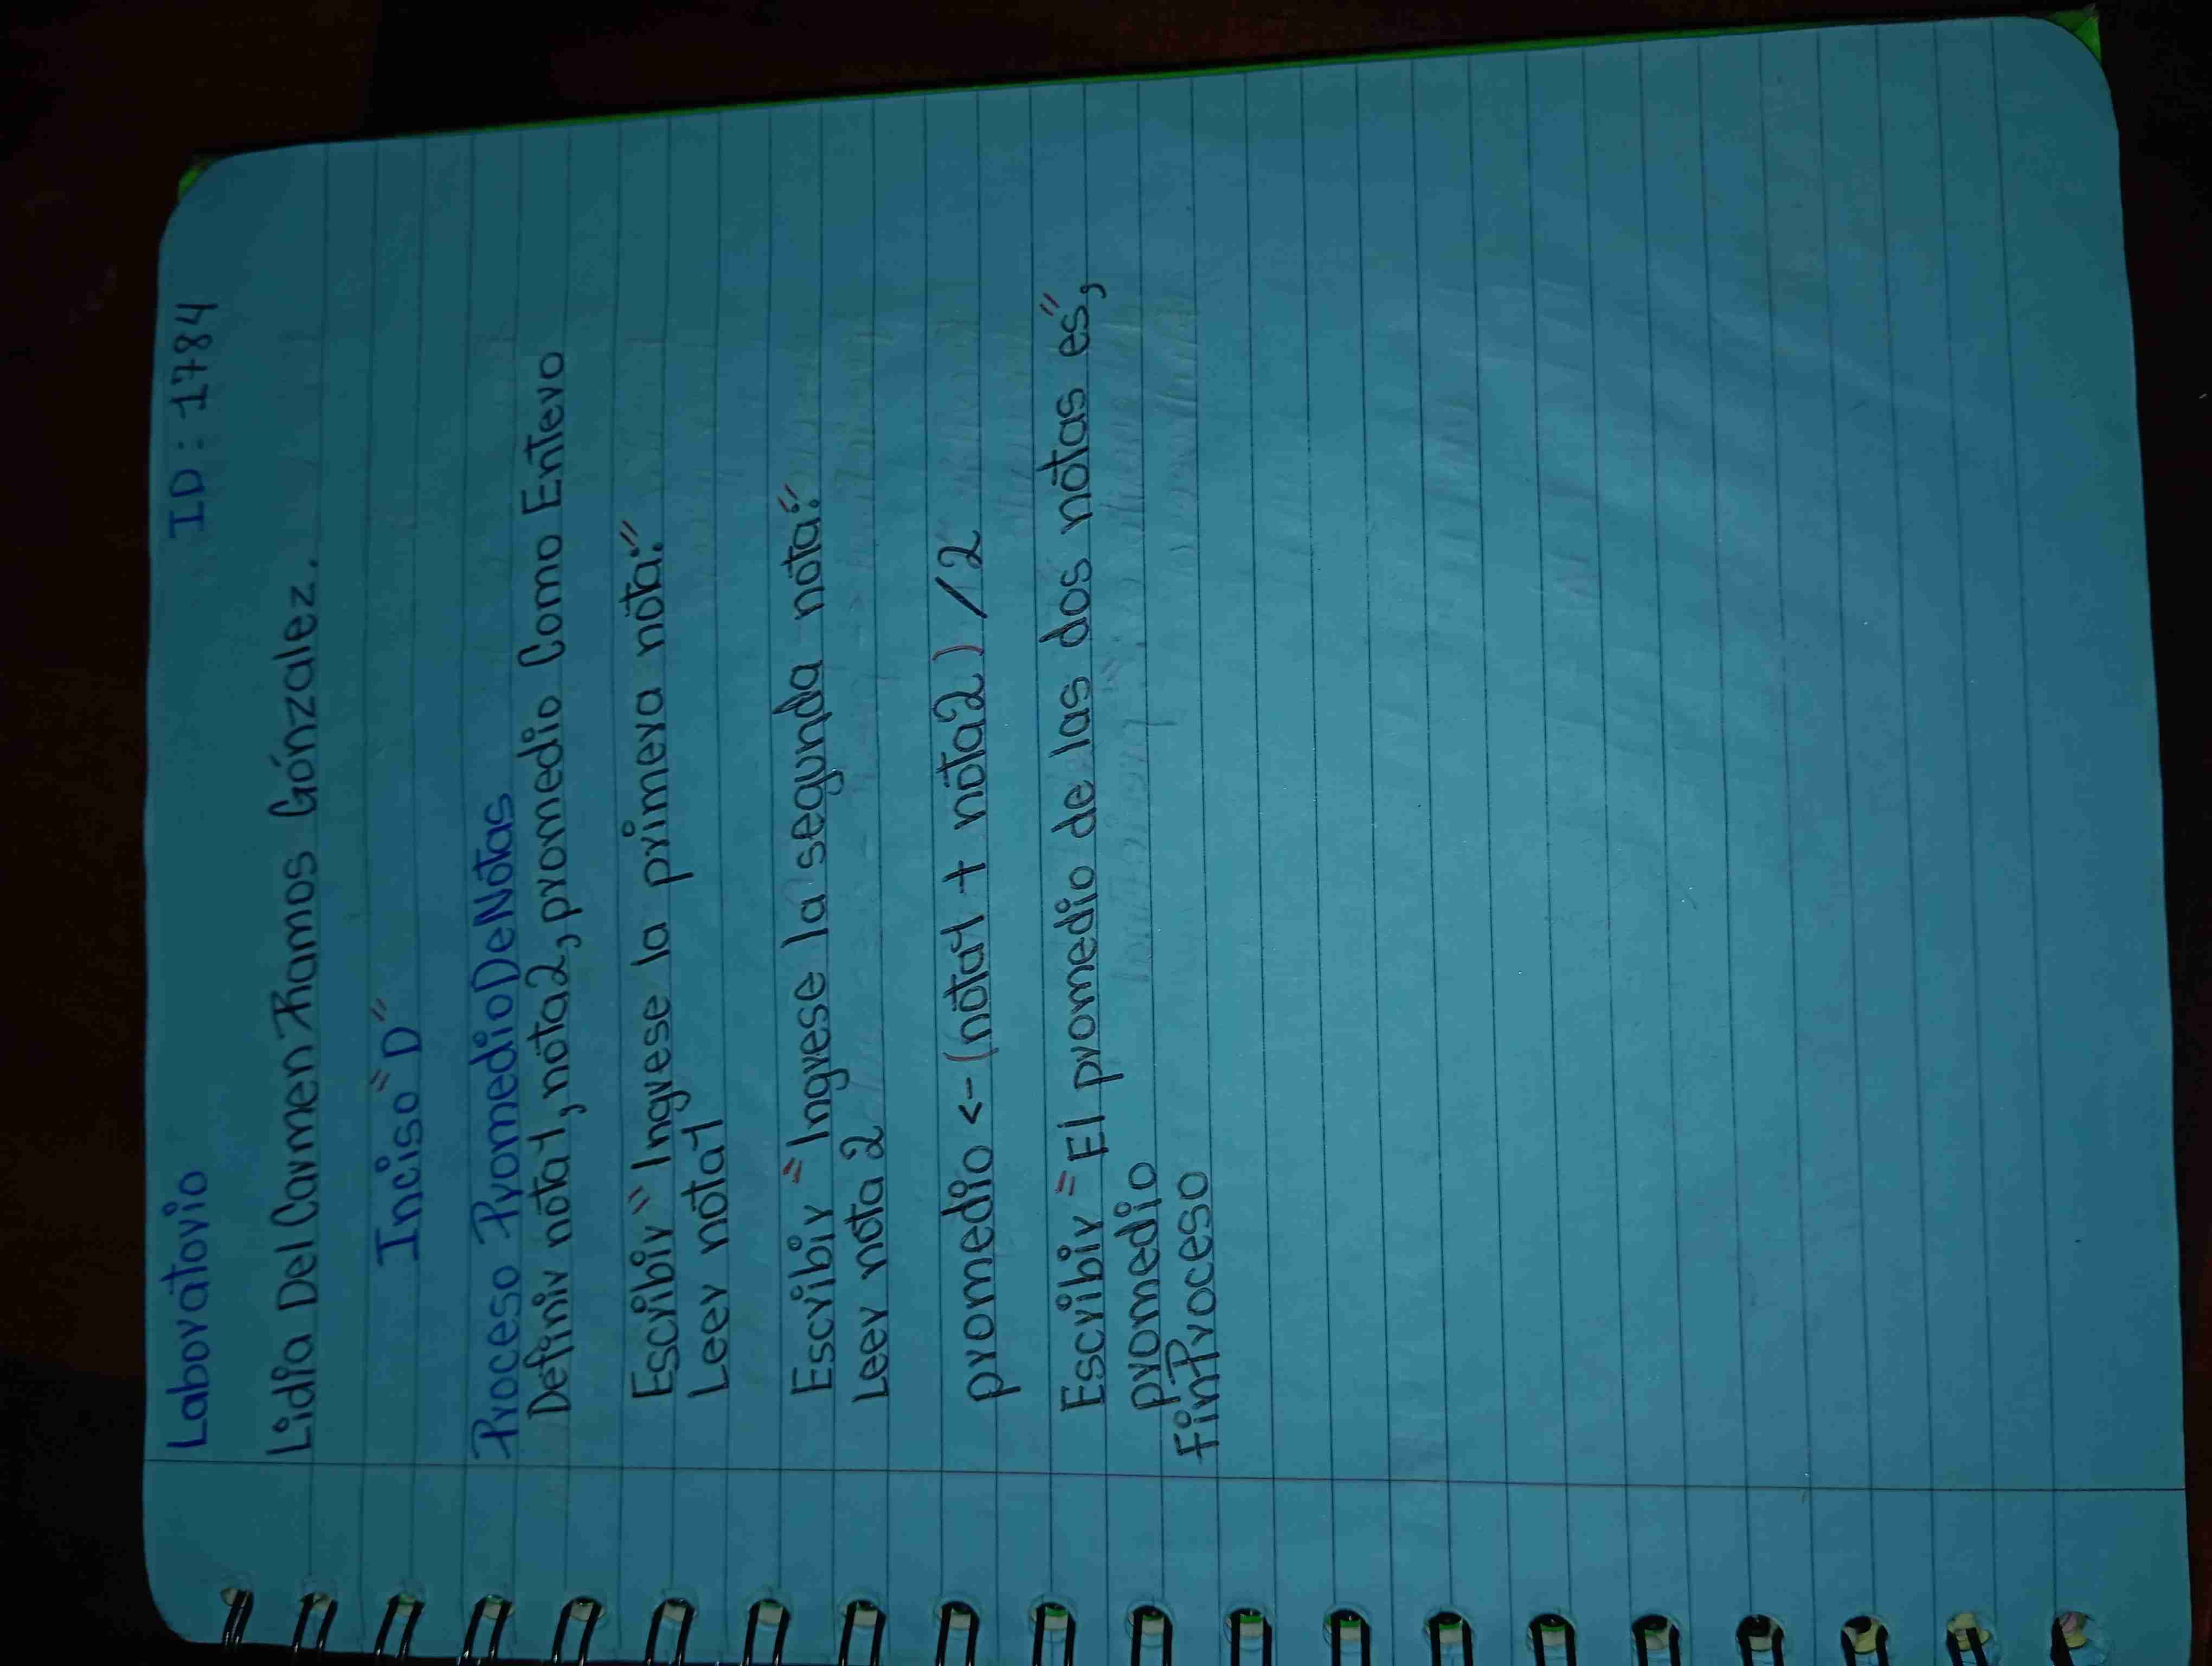 Laboratorio ID: 1784
Lidia Del Carmen Ramos Gónzalez.
Inciso "D"
Proceso PromedioDeNotas
Definir nota1, nota2, promedio Como Entero
Escribir "Ingrese la primera nota:"
Leer nota1
Escribir "Ingrese la segunda nota:"
Leer nota2
promedio <- (nota1 + nota2) /2
Escribir "El promedio de las dos notas es",
promedio
FinProceso